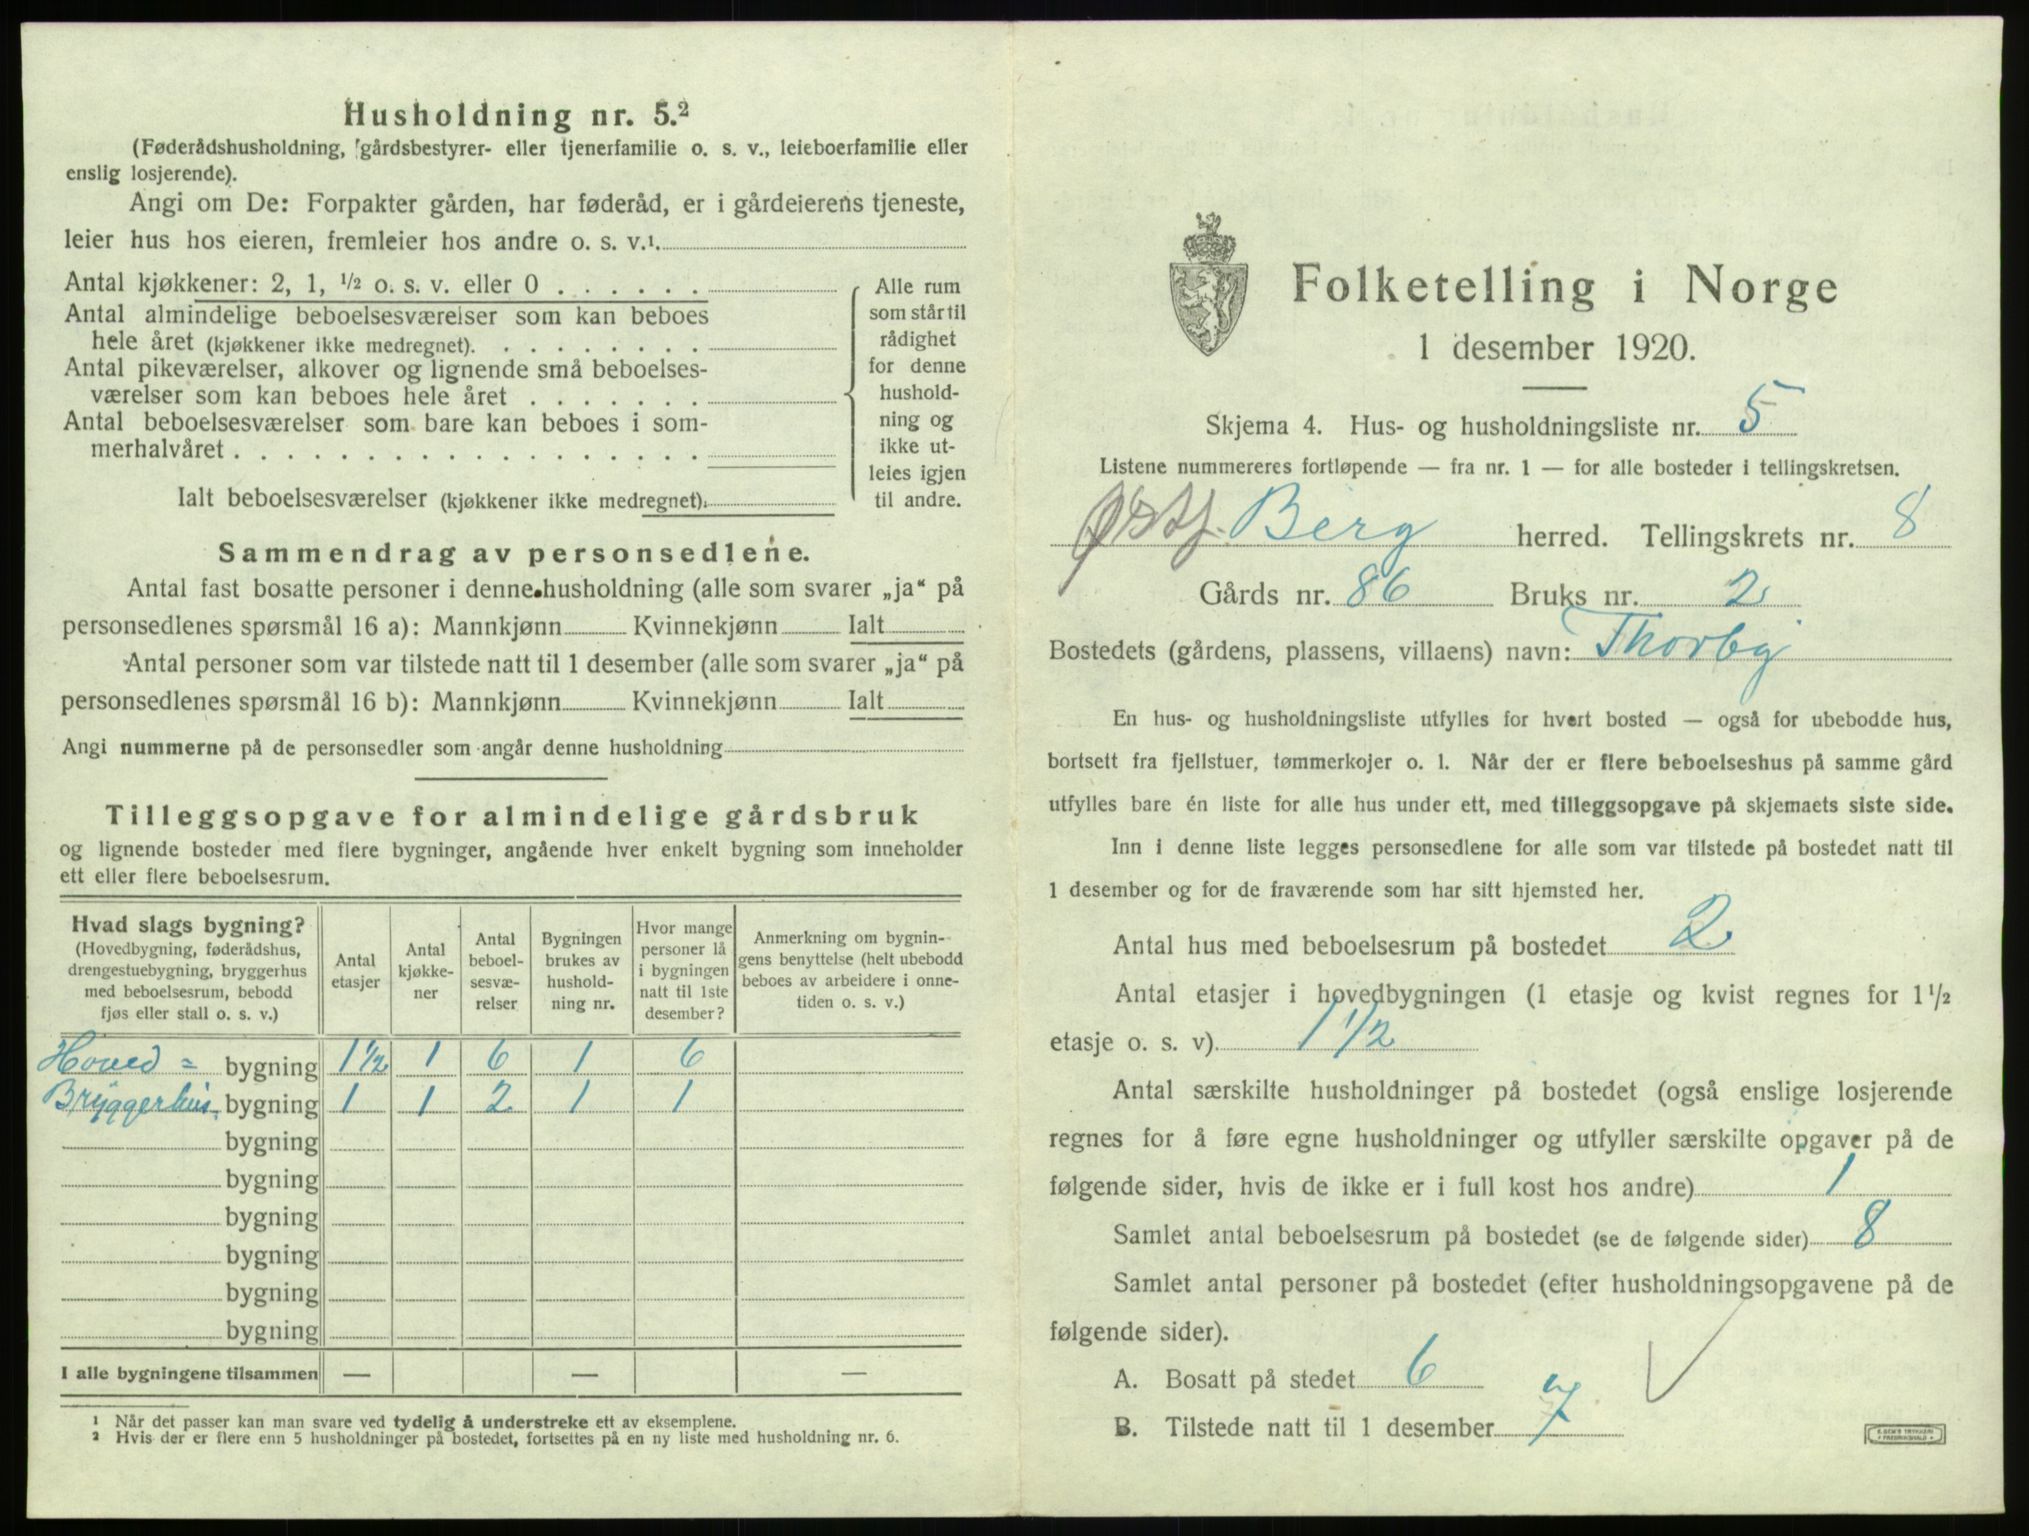 Husholdning nr. 5.²
(Føderådshusholdning, gårdsbestyrer- eller tjenerfamilie o. s. v., leieboerfamilie eller
enslig losjerende).
Angi om De: Forpakter gården, har føderåd, er i gårdeierens tjeneste,
leier hus hos eieren, fremleier hos andre o. s. v.¹
Antal kjøkkener: 2, 1, ½ o. s. v. eller 0 . . . . . .
Antal almindelige beboelsesværelser som kan beboes
hele året (kjøkkener ikke medregnet). . . . . . . . .
Antal pikeværelser, alkover og lignende små beboelses-
værelser som kan beboes hele året . . . . . . .
Antal beboelsesværelser som bare kan beboes i som-
merhalvåret . . . . . . . . . . . . . . . . . .
Ialt beboelsesværelser (kjøkkener ikke medregnet).
Alle rum
som står til
rådighet
for denne
hushold-
ning og
ikke ut-
leies igjen
til andre.
Sammendrag av personsedlene.
Antal fast bosatte personer i denne husholdning (alle som svarer „ja“ på
personsedlenes spørsmål 16 a): Mannkjønn Kvinnekjønn Ialt
Antal personer som var tilstede natt til 1 desember (alle som svarer „ja“ på
personsedlenes spørsmål 16 b): Mannkjønn Kvinnekjønn Ialt
Angi nummerne på de personsedler som angår denne husholdning
Tilleggsopgave for almindelige gårdsbruk
og lignende bosteder med flere bygninger, angående hver enkelt bygning som inneholder
ett eller flere beboelsesrum.
Hvad slags bygning?
(Hovedbygning, føderådshus,
drengestuebygning, bryggerhus
med beboelsesrum, bebodd
fjøs eller stall o. s. v.)
Antal
etasjer
Antal
kjøkke-
ner
Antal
beboel-
sesvæ-
relser
Bygningen
brukes av
hushold-
ning nr.
Hvor mange
personer lå
i bygningen
natt til 1ste
desember?
Anmerkning om bygnin-
gens benyttelse (helt ubebodd
beboes av arbeidere i onne-
tiden o. s. v.)
Hoved = bygning 1 1/2 1 6 1 6
Bryggerhus bygning 1 1 2 1 1
bygning
bygning
bygning
bygning
bygning
bygning
I alle bygningene tilsammen — — —
¹ Når det passer kan man svare ved tydelig å understreke ett av eksemplene.
² Hvis der er flere enn 5 husholdninger på bostedet, fortsettes på en ny liste med husholdning nr. 6.
Folketelling i Norge
1 desember 1920.
Skjema 4. Hus- og husholdningsliste nr. 5
Listene nummereres fortløpende — fra nr. 1 — for alle bosteder i tellingskretsen.
Østf. Berg herred. Tellingskrets nr. 8
Gårds nr. 86 Bruks nr. 2
Bostedets (gårdens, plassens, villaens) navn: Thorby
En hus- og husholdningsliste utfylles for hvert bosted — også for ubebodde hus,
bortsett fra fjellstuer, tømmerkojer o. l. Når der er flere beboelseshus på samme gård
utfylles bare én liste for alle hus under ett, med tilleggsopgave på skjemaets siste side.
Inn i denne liste legges personsedlene for alle som var tilstede på bostedet natt til
1 desember og for de fraværende som har sitt hjemsted her.
Antal hus med beboelsesrum på bostedet 2
Antal etasjer i hovedbygningen (1 etasje og kvist regnes for 1½
etasje o. s. v). 1 1/2
Antal særskilte husholdninger på bostedet (også enslige losjerende
regnes for å føre egne husholdninger og utfyller særskilte opgaver på de
følgende sider, hvis de ikke er i full kost hos andre) 1
Samlet antal beboelsesrum på bostedet (se de følgende sider) 8
Samlet antal personer på bostedet (efter husholdningsopgavene på de
følgende sider).
A. Bosatt på stedet 6
B. Tilstede natt til 1 desember 7